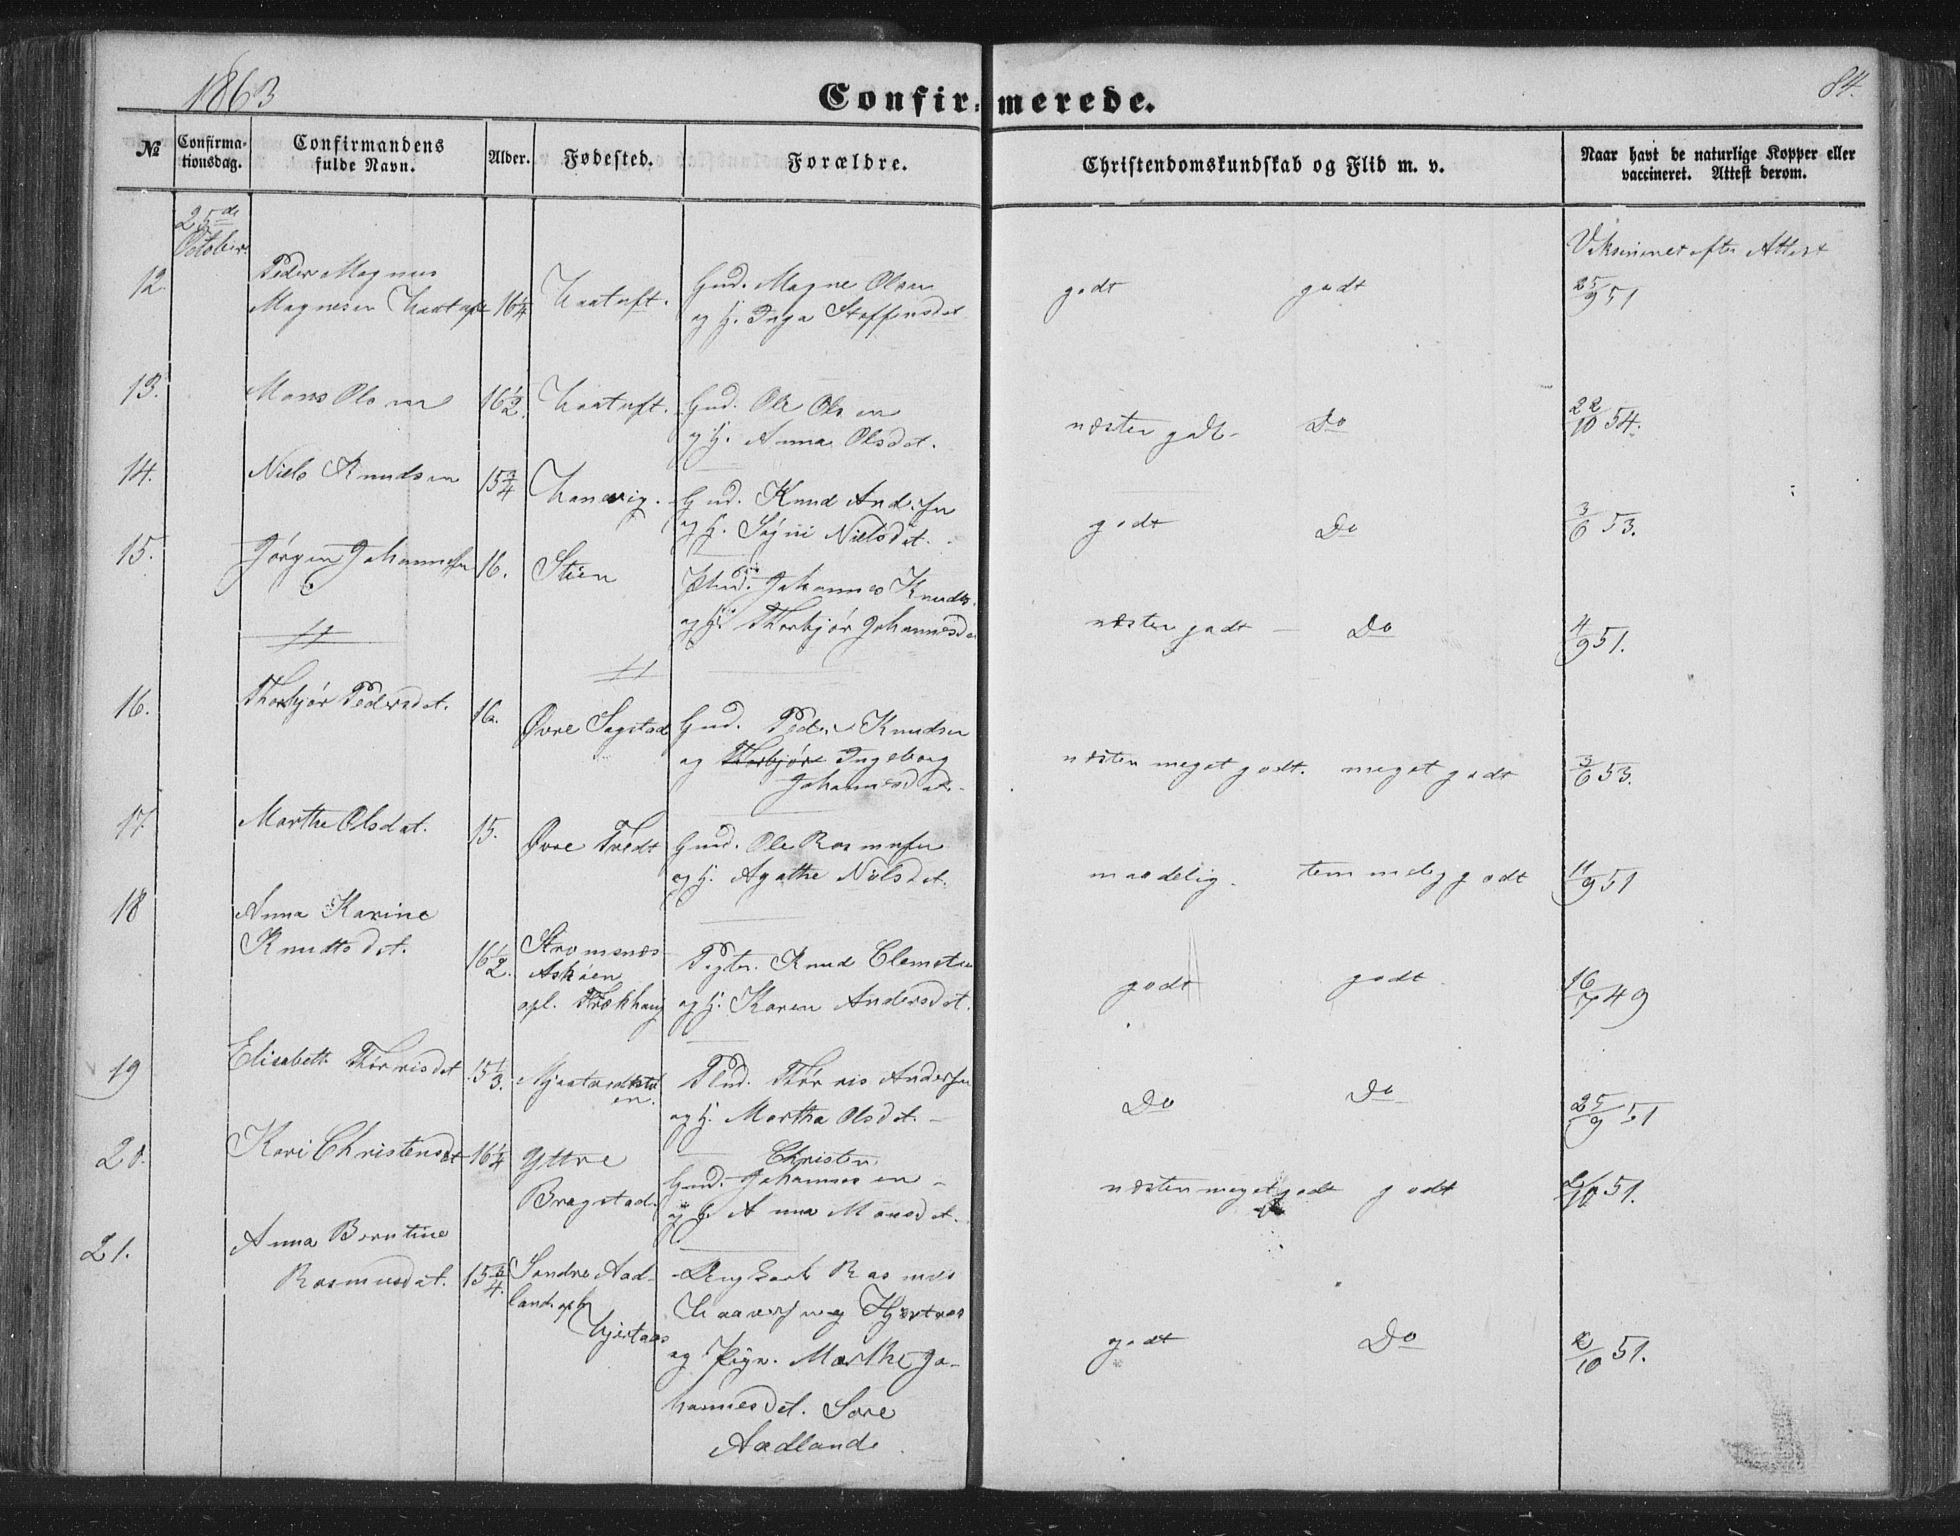 1863
Confirmerede.
84.
№
Confirma-
tionsdag.
Confirmandens
fulde Navn.
Alder.
Fødested.
Forældre.
Christendomskundskab og Flid m. v.
Naar havt de naturlige Kopper eller
vaccineret. Attest derom.
25de
October
12
Peder Magnus
Magnesen
16 1/4
Gud. Magne Olsen
og H. Inga Steffensdat
godt godt
efter Attest
25/9 51
13.
Mons Olsen
16 1/2.
Gud. Ole Olsen
og H. Anna Olsdat.
næsten godt - Do
22/10 54.
14.
Niels Knudsen
15 3/4
Gud. Knud Andersen
og H. Signi Nielsdat.
godt Do
3/6 53.
15.
Jørgen Johannessen
16.
Stien
Johannes Knuds.
og H. Thorbjør Johannesda
næsten godt - Do
4/9 51.
16.
Thorbjør Pedersdat.
16.
Øvre Sagstad
Gud. Peder Knudsen
og Thorbjør Ingeborg
Johannesdat.
næsten meget godt. meget godt
3/6 53.
17.
Marthe Olsdat.
15.
Øvre Tvedt
Gud. Ole Rasmussen
og H. Agathe Nilsdat.
maadelig. temmelig godt
11/9 51
18
Anna Karine
Knudtsdat.
16 1/2.
Strømsnæs
Askøen
opl. Trækhaug
Pagter. Knud Clemetsen
og H. Karen Andersdat.
godt godt
16/7 49
19
Elisabeth Thørrisdat
15 1/3.
en.
Plud. Thørris Andersen
og H. Martha Olsdat. -
Do Do
25/9 51
20.
Kari Christensdat
16 1/4
Yttre
Bragstad.
Christen
Gud. Johannesen -
og H. Anna Monsdat.
næsten meget godt godt
2/10 51.
21.
Anna Berntine
Rasmusdat.
15 3/4.
Søndre Aad-
land opl.
Hjertaas
Ungkarl Rasmus
og Pige. Marthe Jo-
hannesdat. Søre
Aadland.
godt Do
2/10 51.